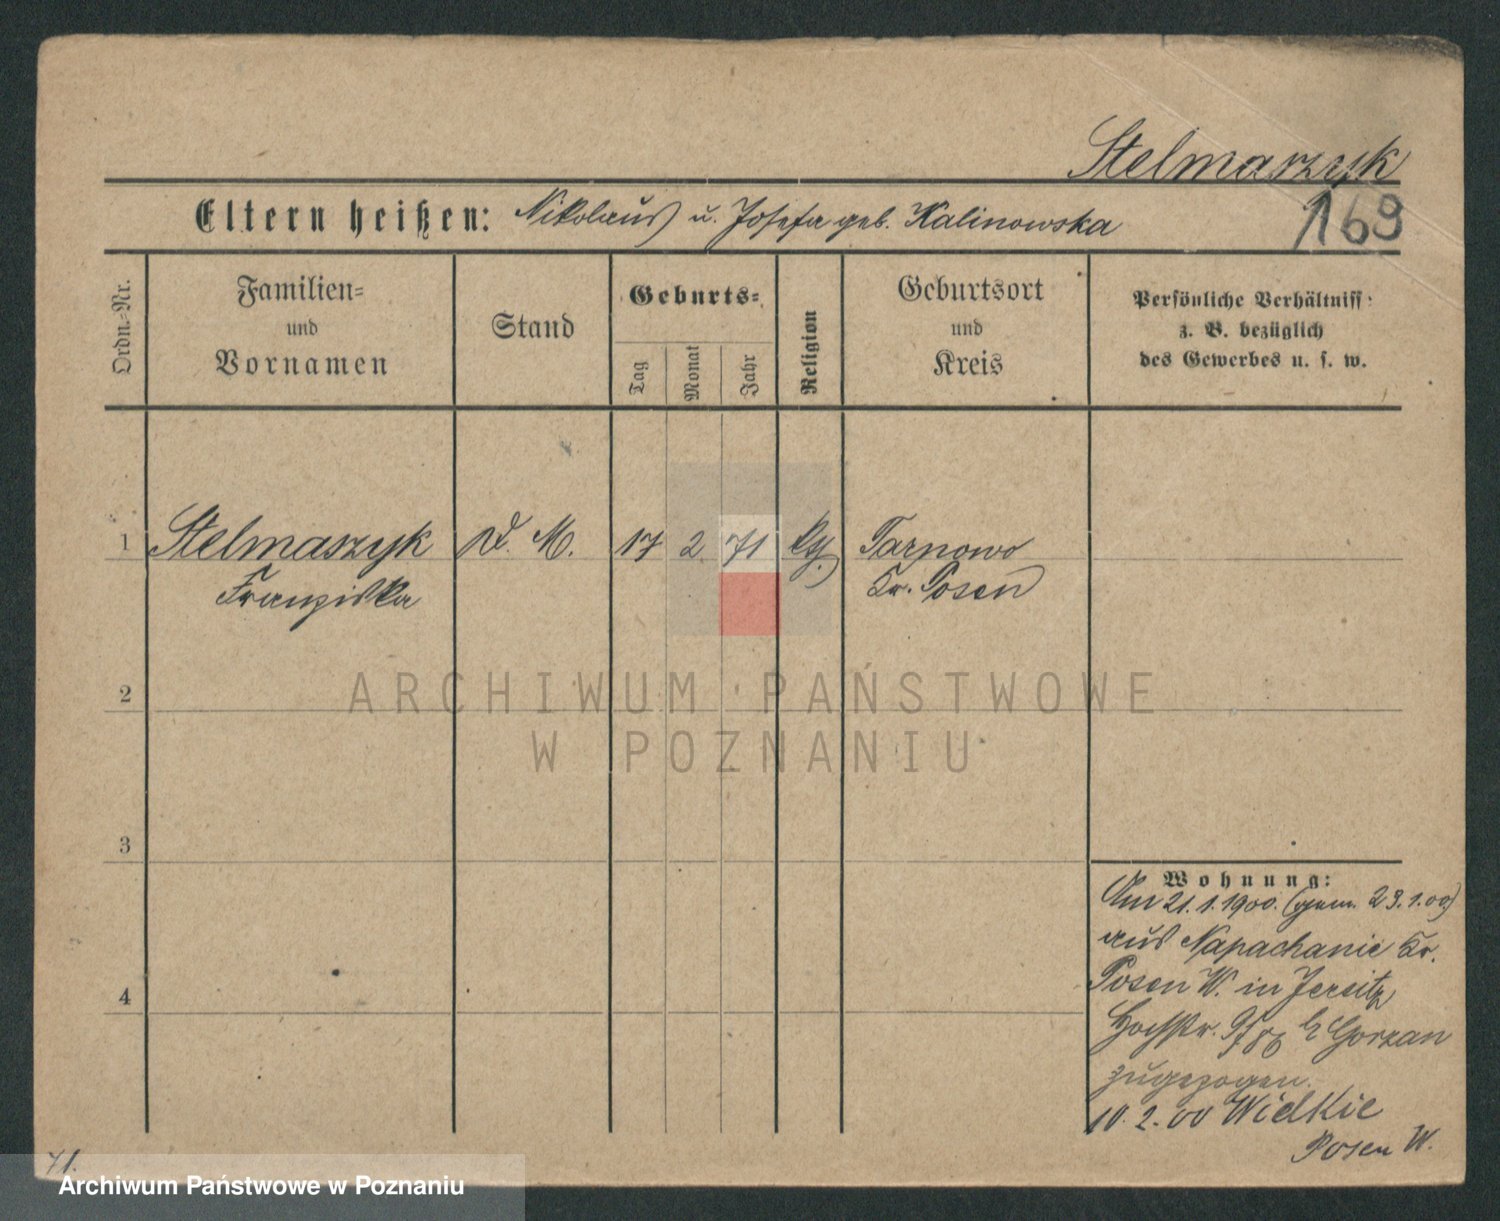 Stelmaszyk
169
Eltern heißen: Nikolaus u. Josefa geb. Kalinowska
Ordn.-Nr.
Familien-
und
Vornamen
Stand
Geburts-
Tag
Monat
Jahr
Religion
Geburtsort
und
Kreis
Persönliche Verhältniss
z. B. bezüglich
des Gewerbes u. s. w.
1 Stelmaszyk D. M. 17 2 71 Tarnowo
Franziska Kr. Posen
ARCHIWUM PAŃSTWOWE
W POZNANIU
2
3
4
Wohnung:
Am 21.1.1900. (gem. 23.1.00)
aus Napachanie Kr.
Posen W. in Jersitz
Hochstr. 9/ b Gorzan
zugezogen.
10.2.00 Wielkie
Posen W.
71.
Archiwum Państwowe w Poznaniu